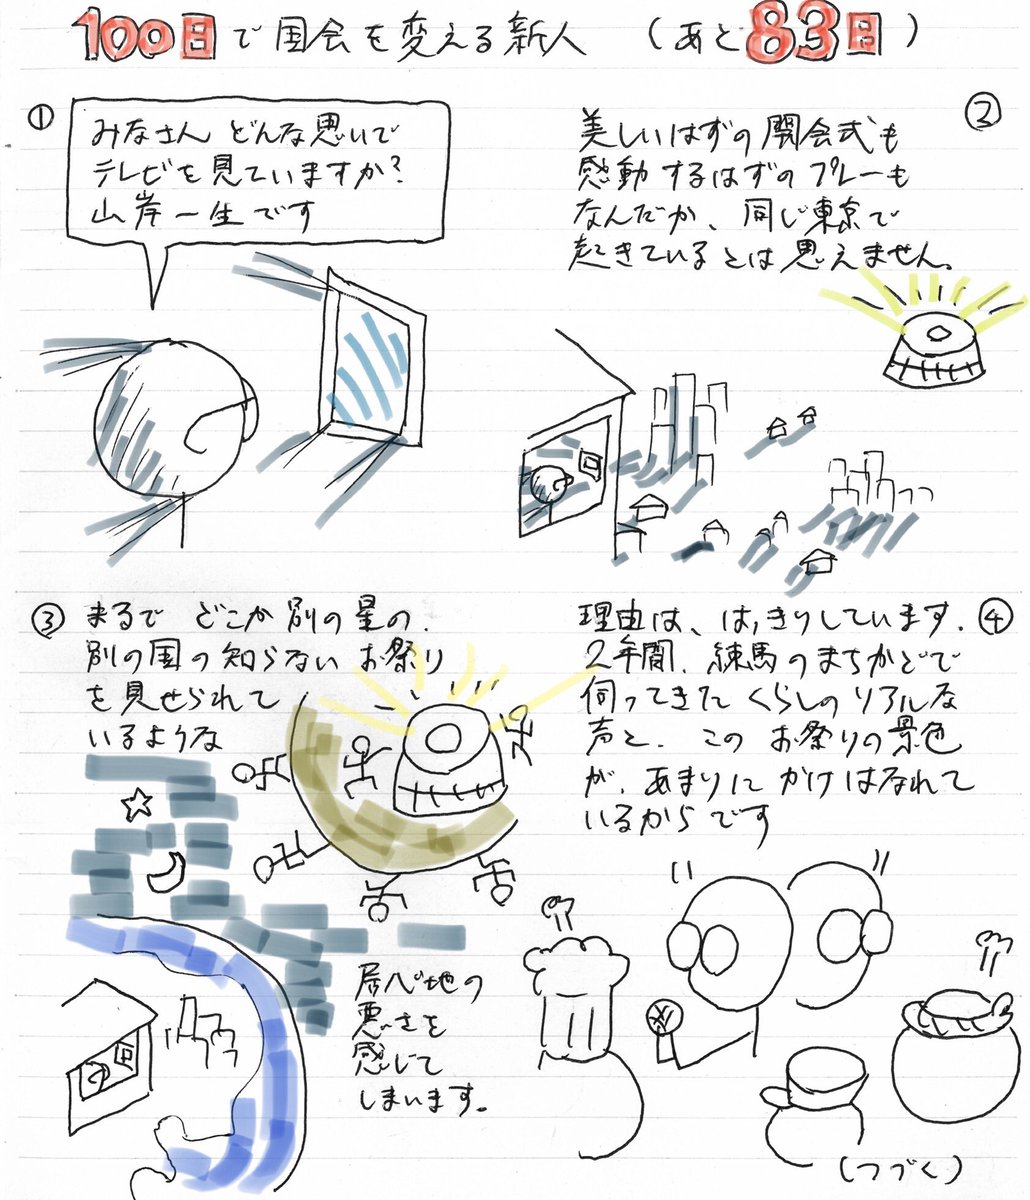 100日で国会を変える新人 (あと83日)
①
みなさん どんな思いで
テレビを見ていますか?
山岸一生です
②
美しいはずの開会式も
感動するはずのプレーも
なんだか、同じ東京で
起きているとは思えません。
③ まるで どこか別の星の、
別の国の知らない お祭り
を見せられて
いるような
居心地の
悪さを
感じて
しまいます。
④
理由は、はっきりしています。
2年間、練馬のまちかどで
伺ってきた くらしのリアルな
声と、この お祭りの景色
が、あまりに かけはなれて
いるからです
(つづく)